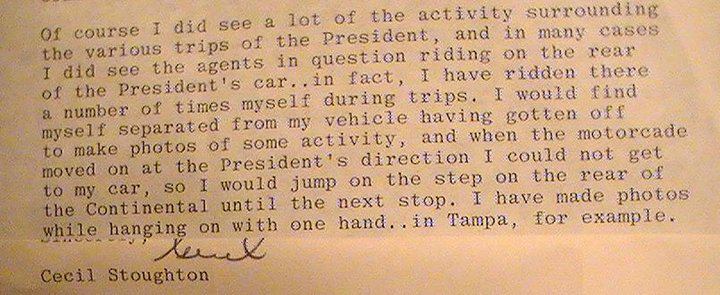 Of course I did see a lot of the activity surrounding
the various trips of the President, and in many cases
I did see the agents in question riding on the rear
of the President's car..in fact, I have ridden there
a number of times myself during trips. I would find
myself separated from my vehicle having gotten off
to make photos of some activity, and when the motorcade
moved on at the President's direction I could not get
to my car, so I would jump on the step on the rear of
the Continental until the next stop. I have made photos
while hanging on with one hand..in Tampa, for example.
Cecil
Cecil Stoughton